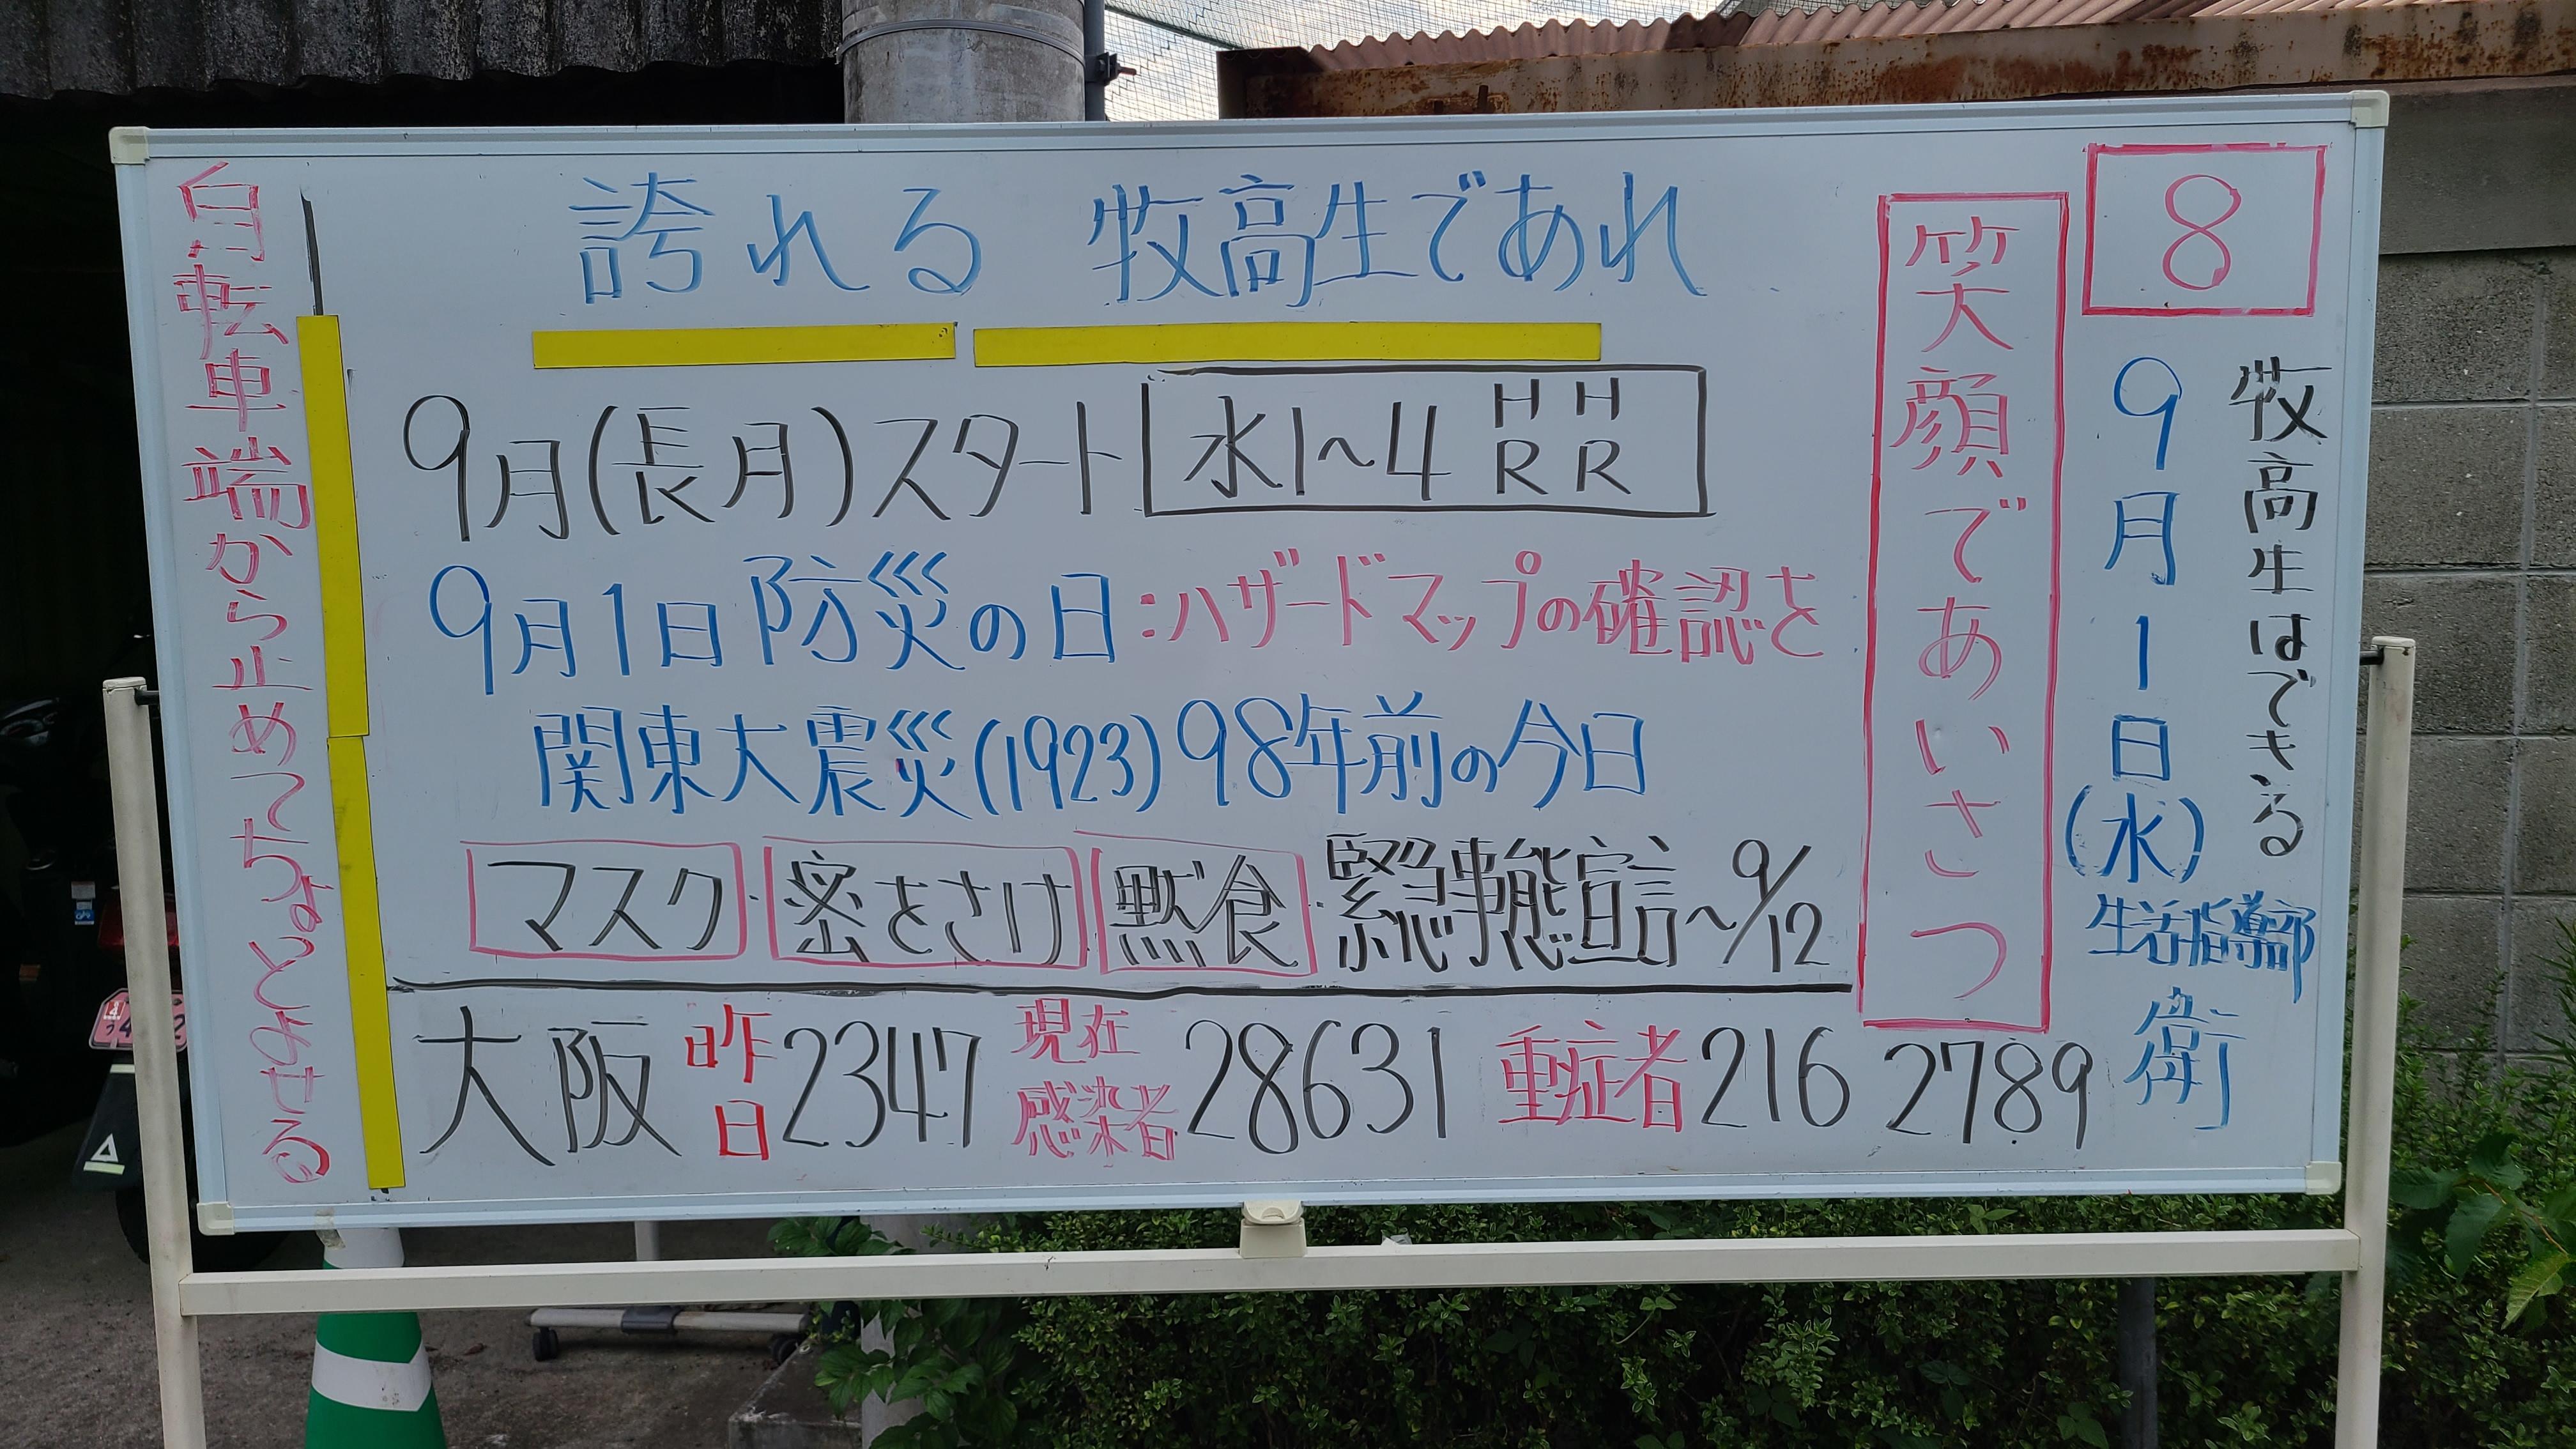 8
牧高生はできる
9月1日(水)
生活指導部
衛
笑顔であいさつ
誇れる 牧高生であれ
9月(長月)スタート 水1~4 HR HR
9月1日防災の日:ハザードマップの確認を
関東大震災(1923)98年前の今日
マスク・密をさけ 黙食・緊急事態宣言~9/12
大阪 昨日2347 現在感染者28631 重症者216 2789
自転車端から止めてちょとみせる